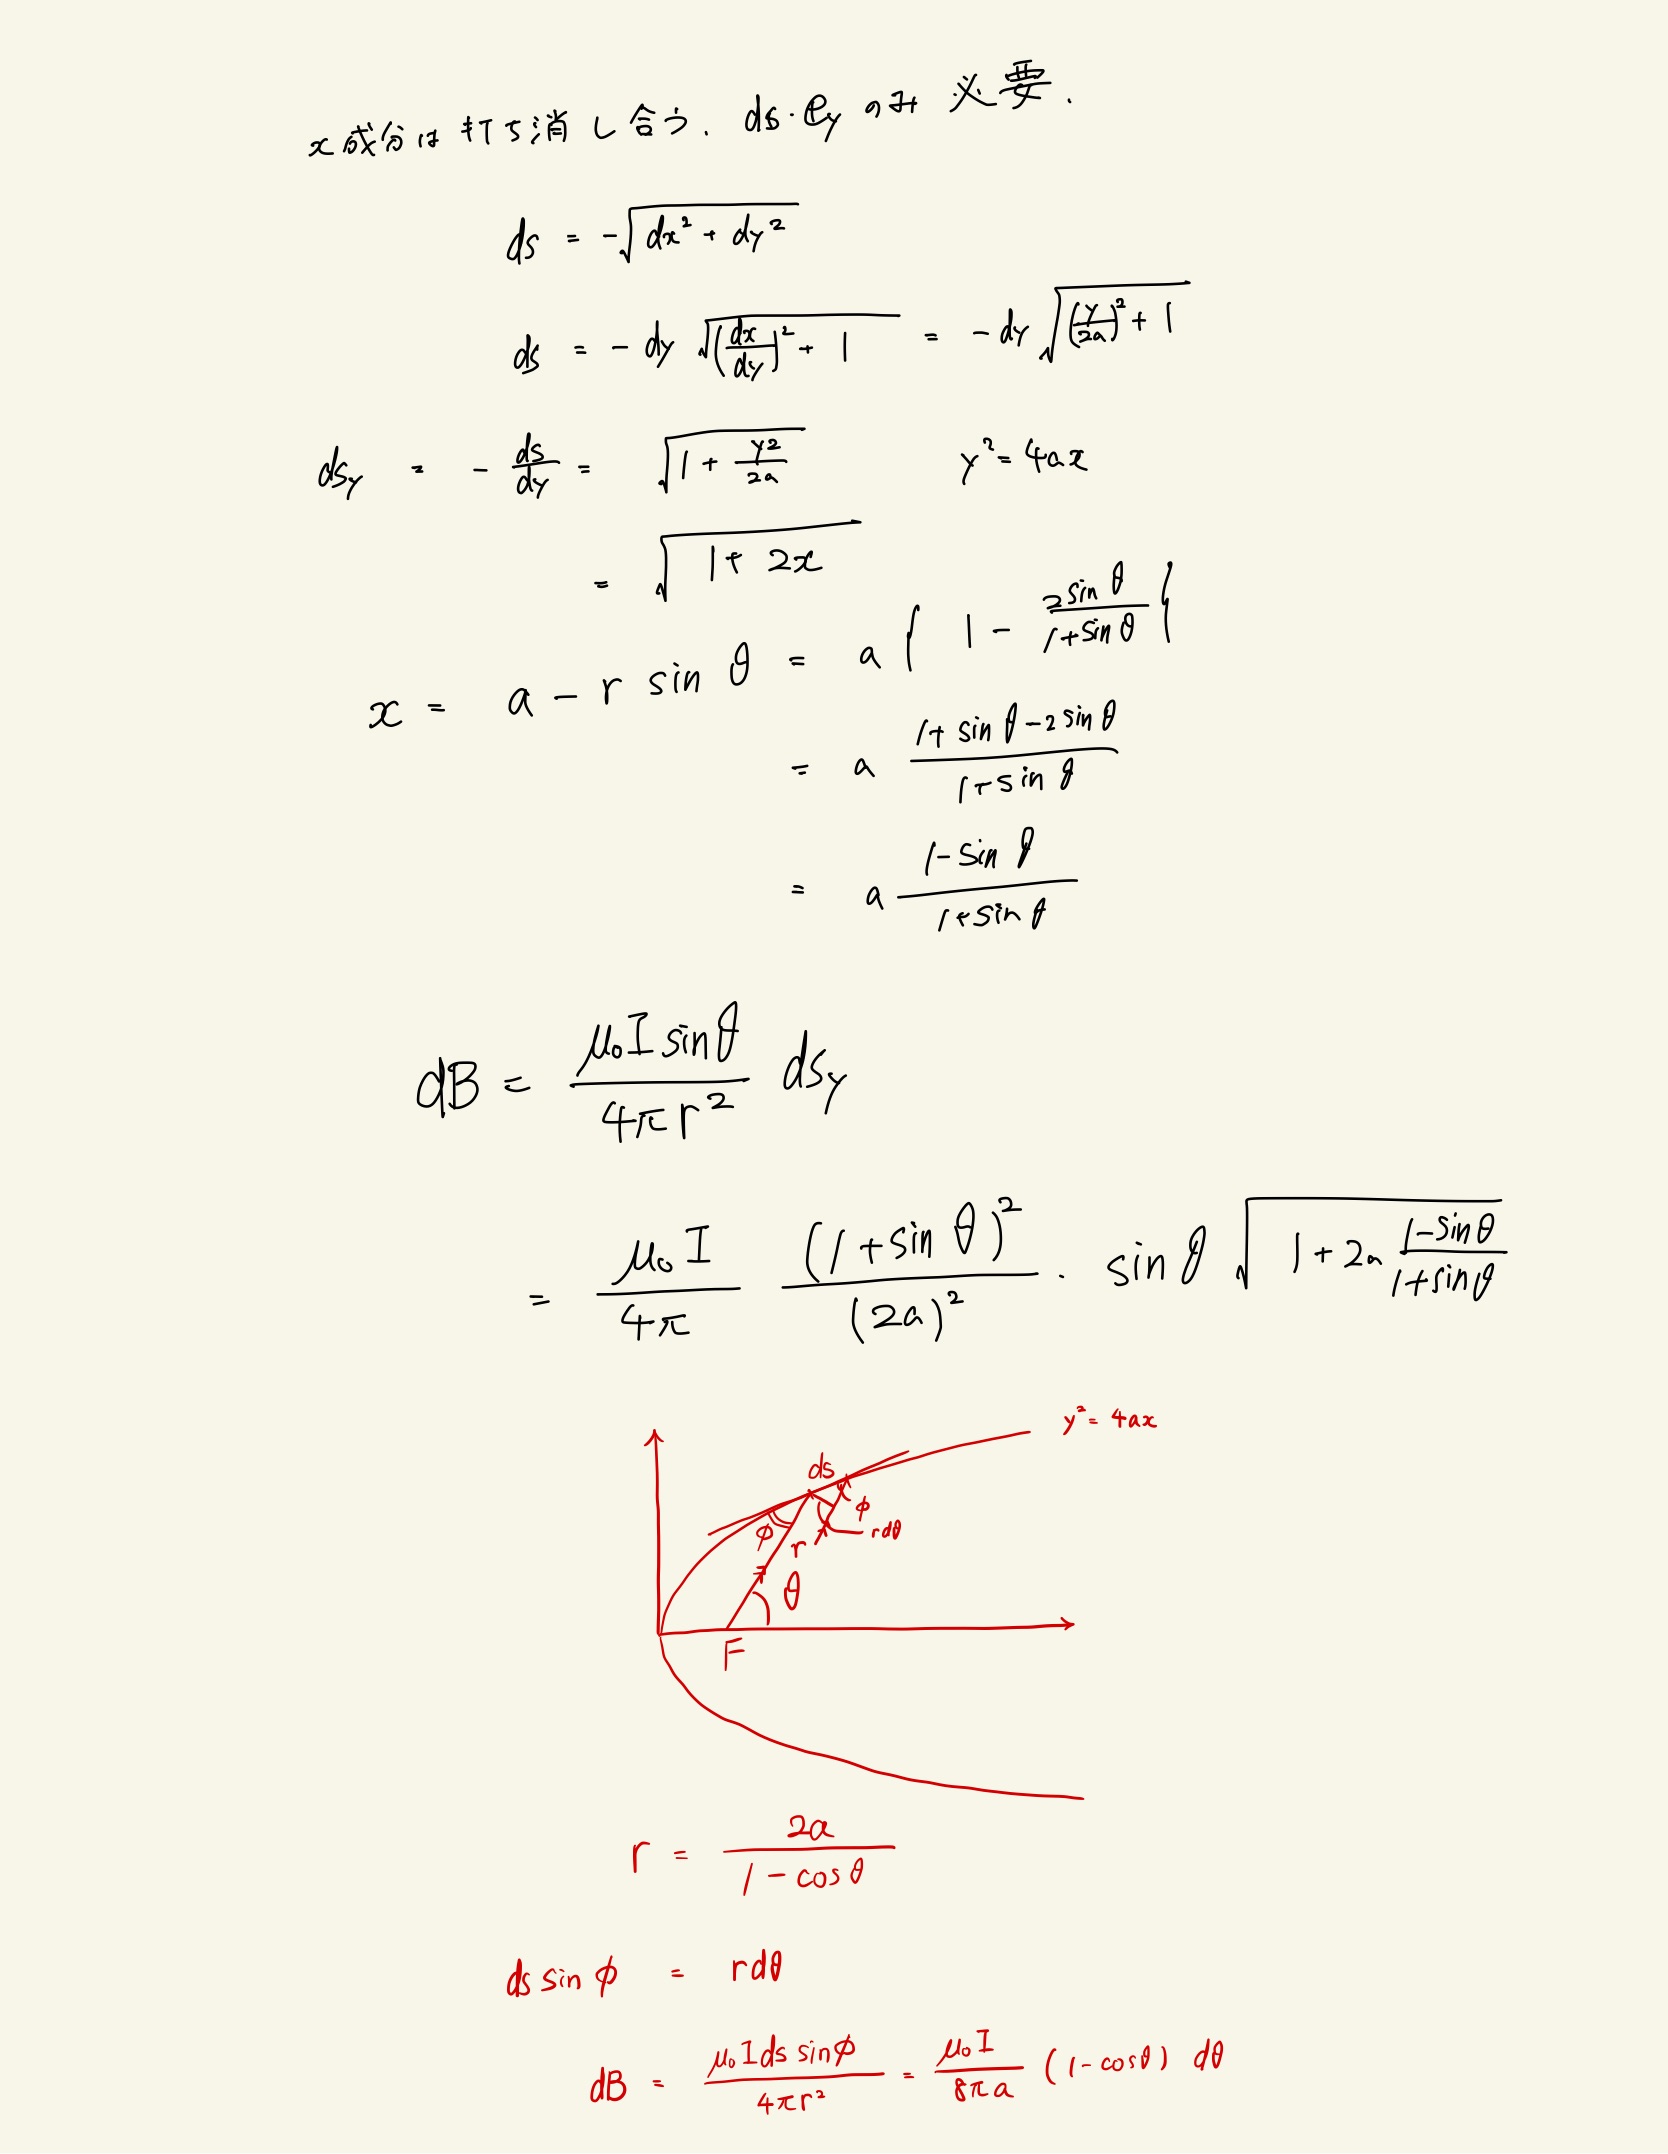 x成分は打ち消し合う. ds・e_y のみ 必要.
ds = -√(dx² + dy²)
ds = - dy √((dx/dy)² + 1) = - dy √((y/2a)² + 1)
ds_y = - ds/dy = √(1 + y2/2a) y² = 4ax
= √(1 + 2x)
x = a - r sin θ = a { 1 - 2 sin θ/(1+sin θ) }
= a (1 + sin θ - 2 sin θ)/(1+sin θ)
= a (1 - sin θ)/(1+sin θ)
dB = μ₀I sinθ/(4πr²) ds_y
= μ₀I/4π (1+sin θ)²/(2a)² · sin θ √(1 + 2a (1-sinθ)/(1+sinθ))
y² = 4ax
ds
φ
φ
rdθ
r
θ
F
r = 2a/(1 - cos θ)
ds sin φ = rdθ
dB = μ₀I ds sinφ/(4πr²) = μ₀I/(8πa) (1-cosθ) dθ